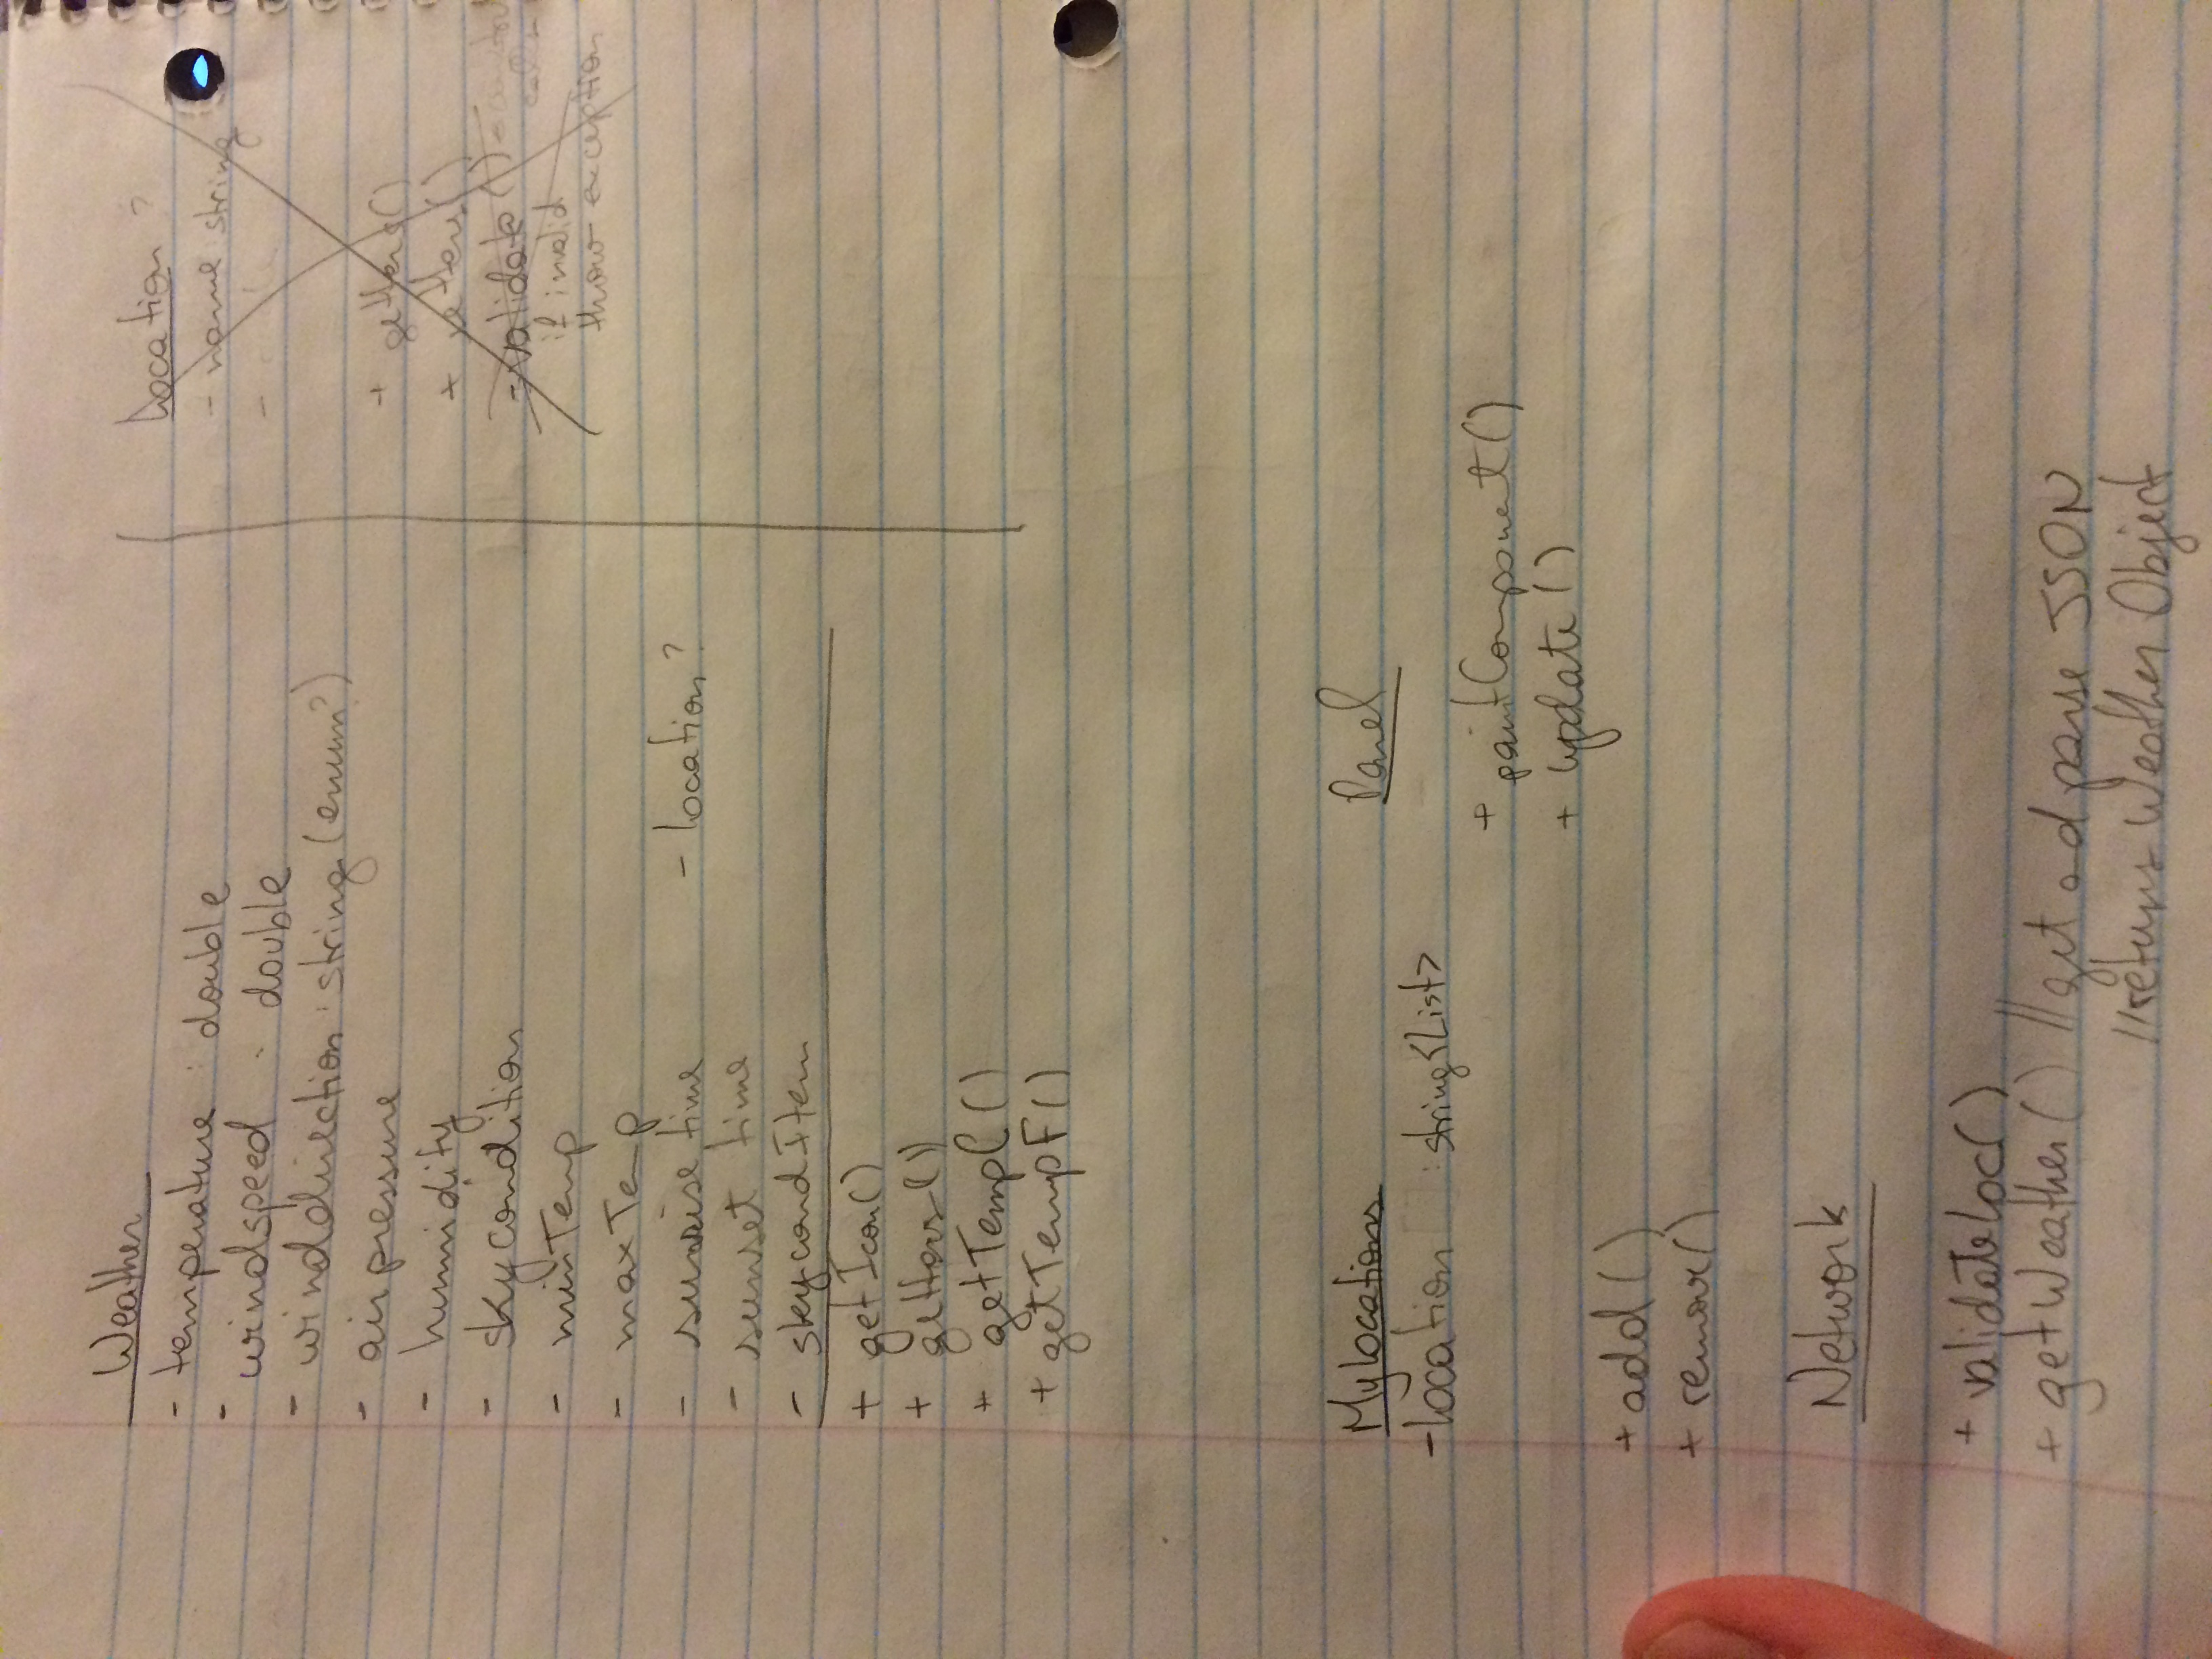 Weather
- temperature : double
- windspeed : double
- winddirection : string (enum?)
- airpressure
- humidity
- skycondition
- minTemp
- maxTemp
- sunrise time - location?
- sunset time
- skycondItem
+ getIcon()
+ getters()
+ getTempC()
+ getTempF()
Location ?
- name : string
-
+ getters()
+ setters()
- validate()
if invalid
throw exception
MyLocations
- location : string<List>
+ add()
+ remove()
Panel
+ paintComponent()
+ update()
Network
+ validateLoc()
+ getWeather() // get and parse JSON
// returns Weather Object